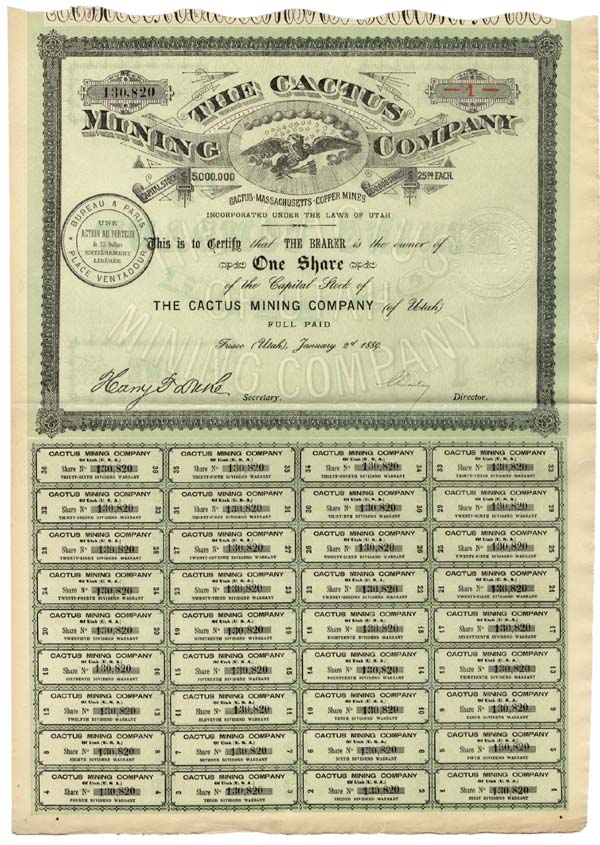 130,820
THE CACTUS
1
MINING COMPANY
CAPITAL STOCK $ 5,000,000
$ 25 00 EACH.
CACTUS-MASSACHUSETTS-COPPER MINES
INCORPORATED UNDER THE LAWS OF UTAH
BUREAU A PARIS
UNE
ACTION AU PORTEUR
de 25 Dollars
ENTIÈREMENT
LIBÉRÉE
PLACE VENTADOUR
This is to Certify that THE BEARER is the owner of
One Share
of the Capital Stock of
THE CACTUS MINING COMPANY (of Utah)
FULL PAID
MINING COMPANY
Frisco (Utah), January 2d 1889.
Harry F Duke
Secretary.
Director.
CACTUS MINING COMPANY
Of Utah (U. S. A.)
36 Share No 130,820 36
THIRTY-SIXTH DIVIDEND WARRANT
CACTUS MINING COMPANY
Of Utah (U. S. A.)
35 Share No 130,820 35
THIRTY-FIFTH DIVIDEND WARRANT
CACTUS MINING COMPANY
Of Utah (U. S. A.)
34 Share No 130,820 34
THIRTY-FOURTH DIVIDEND WARRANT
CACTUS MINING COMPANY
Of Utah (U. S. A.)
33 Share No 130,820 33
THIRTY-THIRD DIVIDEND WARRANT
CACTUS MINING COMPANY
Of Utah (U. S. A.)
32 Share No 130,820 32
THIRTY-SECOND DIVIDEND WARRANT
CACTUS MINING COMPANY
Of Utah (U. S. A.)
31 Share No 130,820 31
THIRTY-FIRST DIVIDEND WARRANT
CACTUS MINING COMPANY
Of Utah (U. S. A.)
30 Share No 130,820 30
THIRTIETH DIVIDEND WARRANT
CACTUS MINING COMPANY
Of Utah (U. S. A.)
29 Share No 130,820 29
TWENTY-NINTH DIVIDEND WARRANT
CACTUS MINING COMPANY
Of Utah (U. S. A.)
28 Share No 130,820 28
TWENTY-EIGHT DIVIDEND WARRANT
CACTUS MINING COMPANY
Of Utah (U. S. A.)
27 Share No 130,820 27
TWENTY-SEVENTH DIVIDEND WARRANT
CACTUS MINING COMPANY
Of Utah (U. S. A.)
26 Share No 130,820 26
TWENTY-SIXTH DIVIDEND WARRANT
CACTUS MINING COMPANY
Of Utah (U. S. A.)
25 Share No 130,820 25
TWENTY-FIFTH DIVIDEND WARRANT
CACTUS MINING COMPANY
Of Utah (U. S. A.)
24 Share No 130,820 24
TWENTY-FOURTH DIVIDEND WARRANT
CACTUS MINING COMPANY
Of Utah (U. S. A.)
23 Share No 130,820 23
TWENTY-THIRD DIVIDEND WARRANT
CACTUS MINING COMPANY
Of Utah (U. S. A.)
22 Share No 130,820 22
TWENTY-SECOND DIVIDEND WARRANT
CACTUS MINING COMPANY
Of Utah (U. S. A.)
21 Share No 130,820 21
TWENTY-FIRST DIVIDEND WARRANT
CACTUS MINING COMPANY
Of Utah (U. S. A.)
20 Share No 130,820 20
TWENTIETH DIVIDEND WARRANT
CACTUS MINING COMPANY
Of Utah (U. S. A.)
19 Share No 130,820 19
NINETEENTH DIVIDEND WARRANT
CACTUS MINING COMPANY
Of Utah (U. S. A.)
18 Share No 130,820 18
EIGHTEENTH DIVIDEND WARRANT
CACTUS MINING COMPANY
Of Utah (U. S. A.)
17 Share No 130,820 17
SEVENTEENTH DIVIDEND WARRANT
CACTUS MINING COMPANY
Of Utah (U. S. A.)
16 Share No 130,820 16
SIXTEENTH DIVIDEND WARRANT
CACTUS MINING COMPANY
Of Utah (U. S. A.)
15 Share No 130,820 15
FIFTEENTH DIVIDEND WARRANT
CACTUS MINING COMPANY
Of Utah (U. S. A.)
14 Share No 130,820 14
FOURTEENTH DIVIDEND WARRANT
CACTUS MINING COMPANY
Of Utah (U. S. A.)
13 Share No 130,820 13
THIRTEENTH DIVIDEND WARRANT
CACTUS MINING COMPANY
Of Utah (U. S. A.)
12 Share No 130,820 12
TWELFTH DIVIDEND WARRANT
CACTUS MINING COMPANY
Of Utah (U. S. A.)
11 Share No 130,820 11
ELEVENTH DIVIDEND WARRANT
CACTUS MINING COMPANY
Of Utah (U. S. A.)
10 Share No 130,820 10
TENTH DIVIDEND WARRANT
CACTUS MINING COMPANY
Of Utah (U. S. A.)
9 Share No 130,820 9
NINTH DIVIDEND WARRANT
CACTUS MINING COMPANY
Of Utah (U. S. A.)
8 Share No 130,820 8
EIGHTH DIVIDEND WARRANT
CACTUS MINING COMPANY
Of Utah (U. S. A.)
7 Share No 130,820 7
SEVENTH DIVIDEND WARRANT
CACTUS MINING COMPANY
Of Utah (U. S. A.)
6 Share No 130,820 6
SIXTH DIVIDEND WARRANT
CACTUS MINING COMPANY
Of Utah (U. S. A.)
5 Share No 130,820 5
FIFTH DIVIDEND WARRANT
CACTUS MINING COMPANY
Of Utah (U. S. A.)
4 Share No 130,820 4
FOURTH DIVIDEND WARRANT
CACTUS MINING COMPANY
Of Utah (U. S. A.)
3 Share No 130,820 3
THIRD DIVIDEND WARRANT
CACTUS MINING COMPANY
Of Utah (U. S. A.)
2 Share No 130,820 2
SECOND DIVIDEND WARRANT
CACTUS MINING COMPANY
Of Utah (U. S. A.)
1 Share No 130,820 1
FIRST DIVIDEND WARRANT